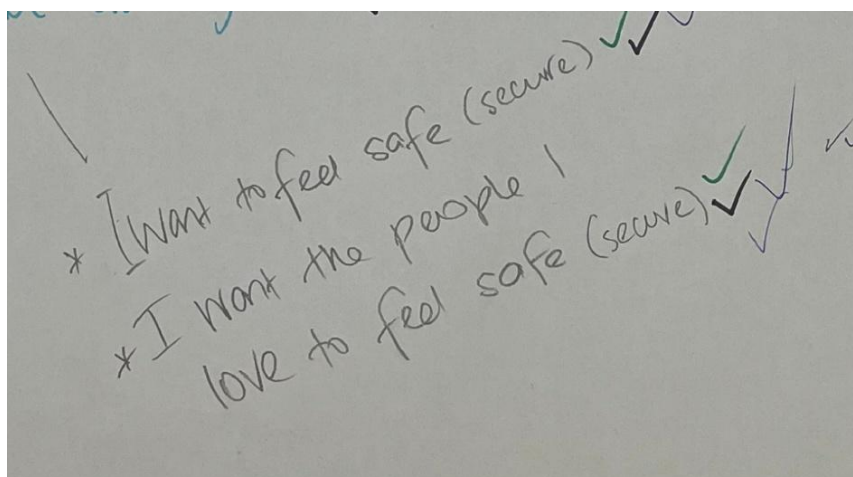 * I want to feel safe (secure) ✓✓✓
* I want the people I
love to feel safe (secure) ✓✓✓✓